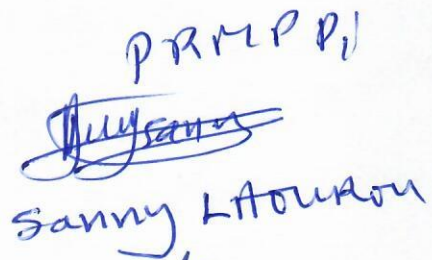 PRMP P,i
Sanny LAOUROU